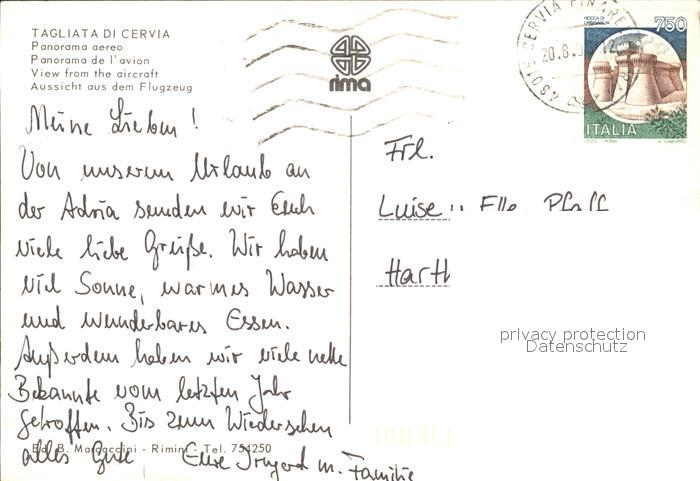 TAGLIATA DI CERVIA
Panorama aereo
Panorama de l'avion
View from the aircraft
Aussicht aus dem Flugzeug
rima
Meine Lieben!
Von unserem Urlaub an
der Adria senden wir Euch
viele liebe Grüße. Wir haben
viel Sonne, warmes Wasser
und wunderbares Essen.
Außerdem haben wir viele nette
Bekannte vom letzten Jahr
getroffen. Bis zum Wiedersehen
Ed. B. Marcaccini - Rimini - Tel. 754250
alles Gute Eure Irmgard m. Familie
CERVIA PINARE
20.8. 12
48015
ROCCA DI
URBISAGLIA
750
ITALIA
I.P.Z.S. - ROMA
Frl.
Luise u. Elle Pfaff
Harth
privacy protection
Datenschutz